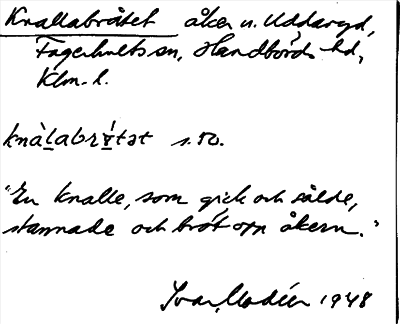 Knallabråtet åker n. Uddaryd,
Fagerhults sn, Handbörds hd,
Klm. l.
s. 50.
"En knalle, som gick och sålde,
stannade och bröt opp åkern."
Ivar Modéer 1948